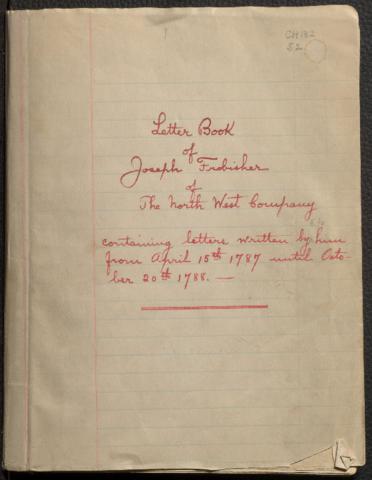 CH132
S2
Letter Book
of
Joseph Frobisher
of
The North West Company
containing letters written by him
from April 15th 1787 until Octo-
ber 20th 1788. —